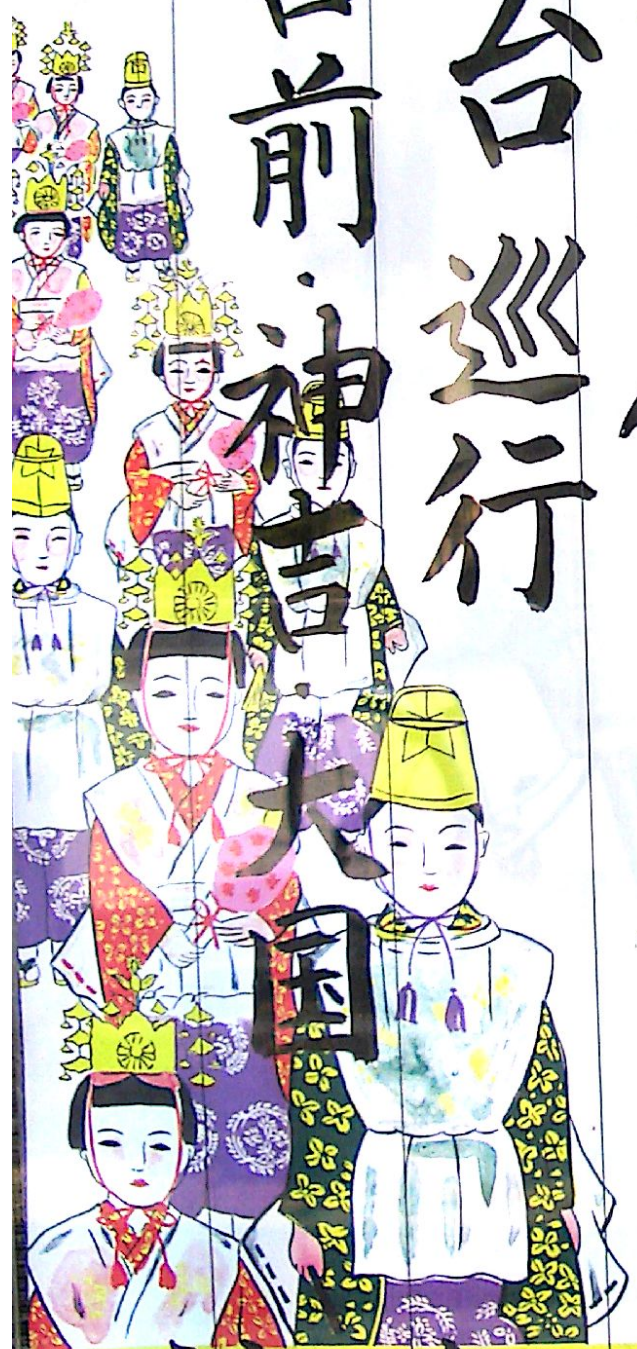 台巡行
前・神吉・大国